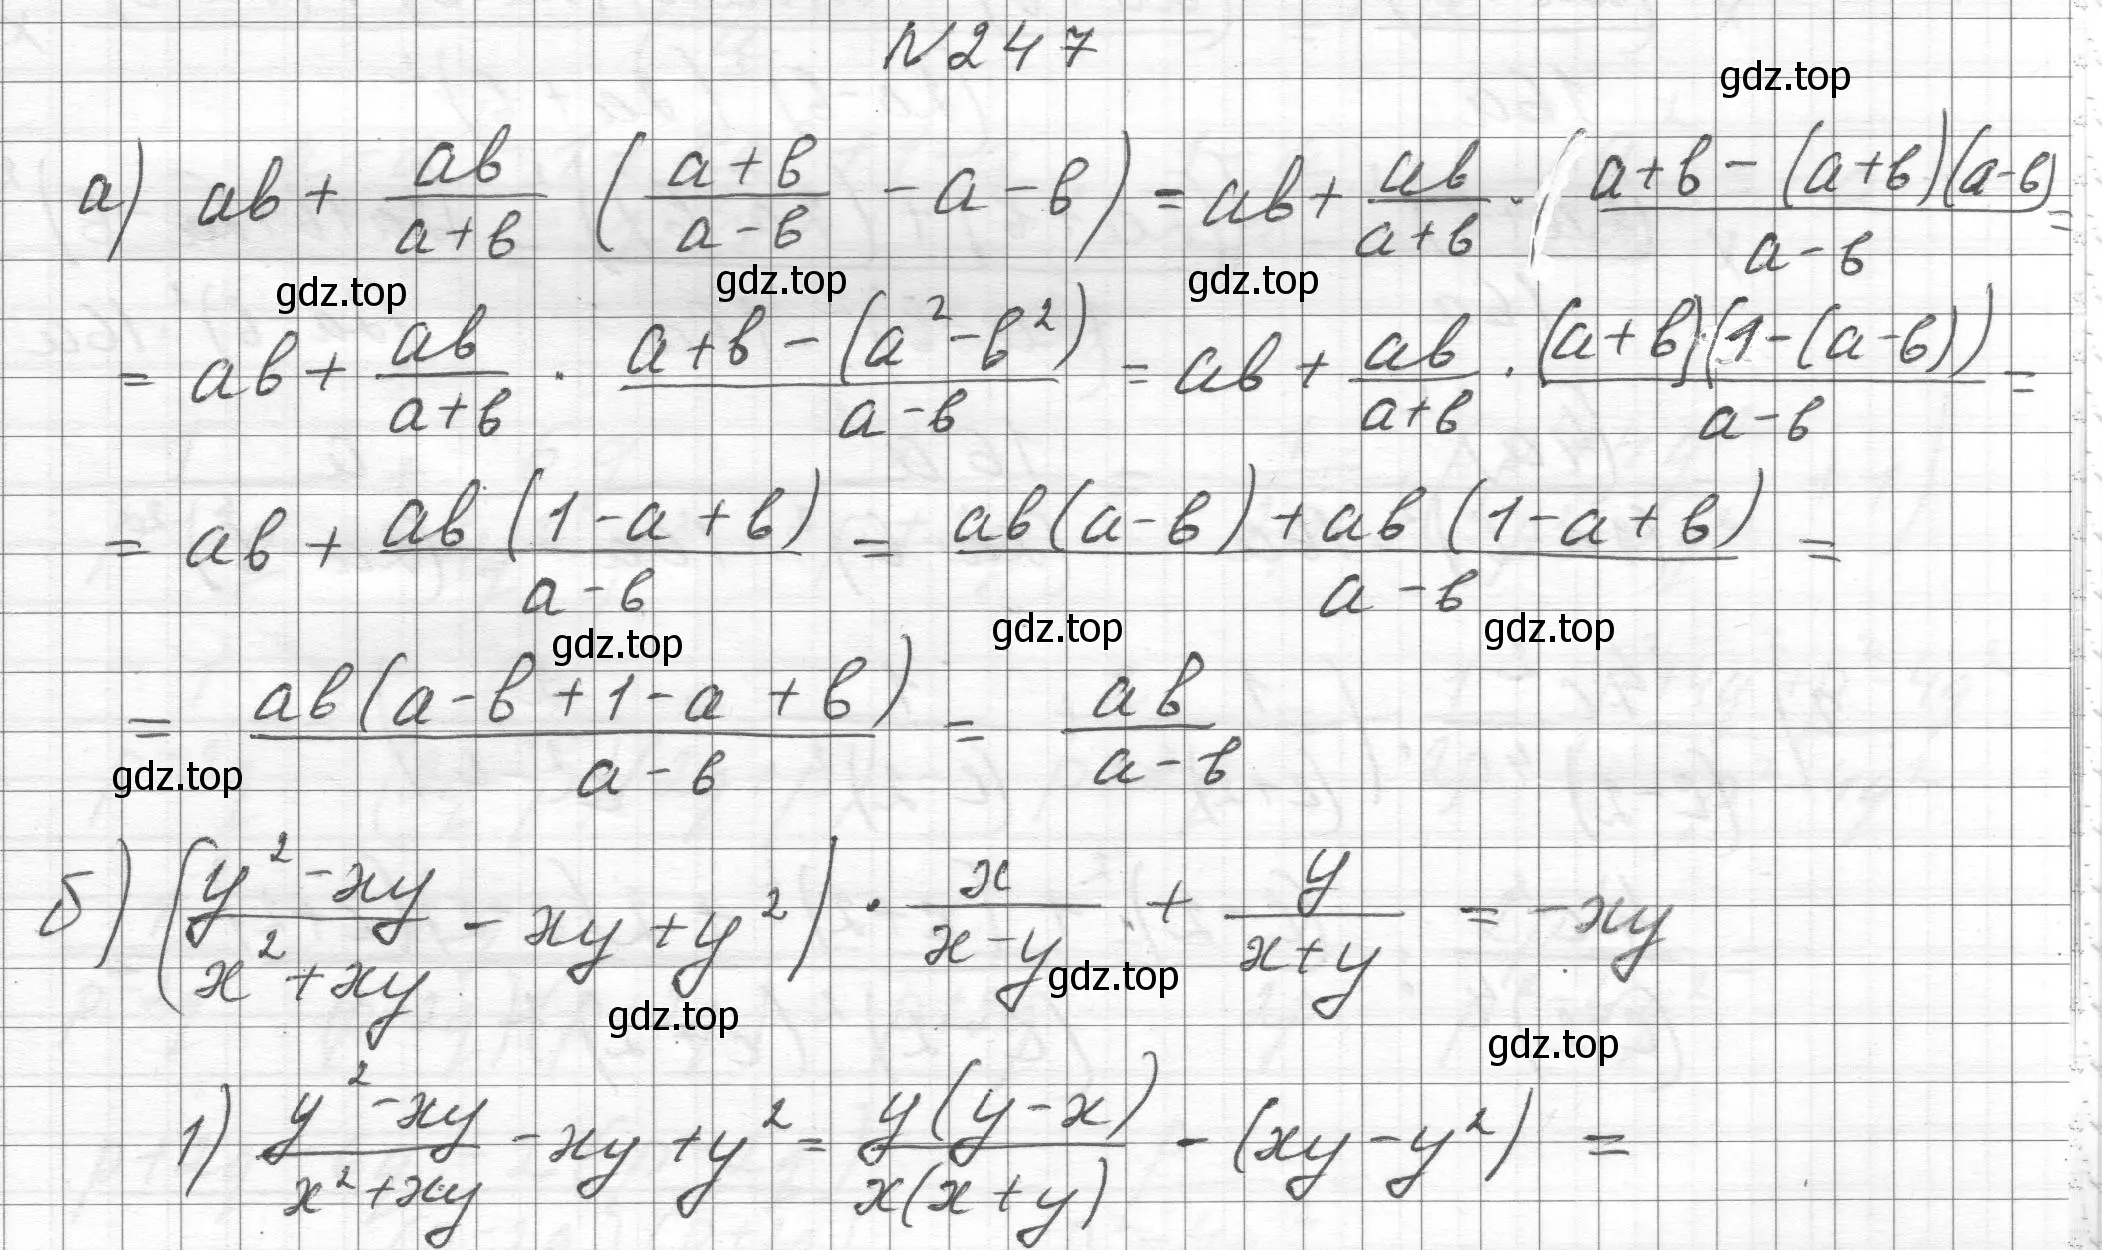 N247
gdz.top
а) ab + ab/(a+b) (a+b/(a-b) - a - b) = ab + ab/(a+b) · (a+b-(a+b)(a-b)/(a-b) =
gdz.top gdz.top gdz.top
= ab + ab/(a+b) · (a+b-(a²-b²))/(a-b) = ab + ab/(a+b) · (a+b)(1-(a-b))/(a-b) =
= ab + ab(1-a+b)/(a-b) = (ab(a-b)+ab(1-a+b))/(a-b) =
gdz.top gdz.top gdz.top
= ab(a-b+1-a+b)/(a-b) = ab/(a-b)
gdz.top
б) ((y²-xy)/(x²+xy) - xy + y²) · x/(x-y) + y/(x+y) = -xy
gdz.top gdz.top gdz.top
1) (y²-xy)/(x²+xy) - xy + y² = y(y-x)/(x(x+y)) - (xy-y²) =